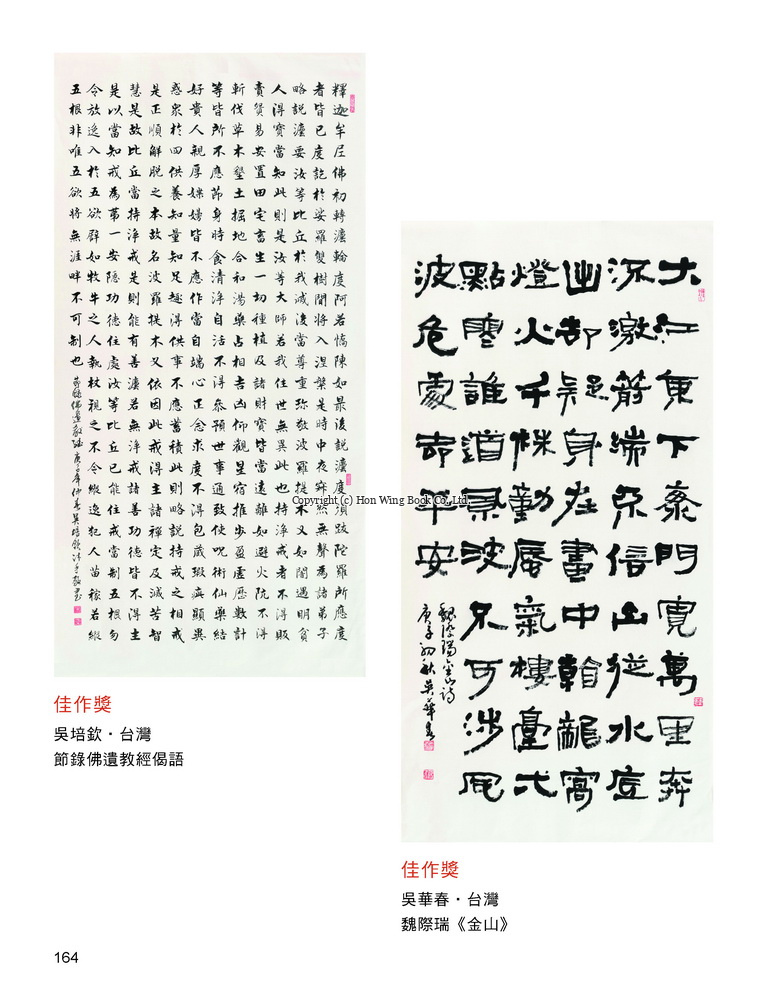 釋迦牟尼佛初轉灋輪度阿若憍陳如最後說灋度須跋陀羅所應度
者皆已度訖於娑羅雙樹間將入涅槃是時中夜寂然無聲為諸弟子
略說灋要汝等比丘於我滅後當尊重珍敬波羅提木叉如闇遇明貧
人得寶當知此則是汝等大師若我住世無異此也持淨戒者不得販
賣貿易安置田宅畜生一切種植及諸財寶皆當遠離如避火阬不得
斬伐草木墾土掘地合和湯藥占相吉凶仰觀星宿推步盈虛歷數計
等皆所不應節身時食清淨自活不得參預世事通致使呪術仙藥結
好貴人親厚媟嫚皆不應作當自端心正念求度不得包藏瑕疵顯異
惑眾於四供養知量知足趣得供事不應蓄積此則略說持戒之相戒
是正順解脫之本故名波羅提木叉依因此戒得生諸禪定及滅苦智
慧是故比丘當持淨戒是則能有善灋若無淨戒諸善功德皆不得生
是以當知戒為第一安隱功德住處汝等比丘已能住戒當制五根勿
令放逸入於五欲辟如牧牛之人執杖視之不令縱逸犯人苗稼若縱
五根非唯五欲將無涯畔不可制也
節錄佛遺教經庚子年仲春吳培欽沐手敬書
佳作獎
吳培欽・台灣
節錄佛遺教經偈語
大江東下海門寬萬里奔
流激箭端果信山從水底
出却疑身在畫中看龍窩
燈火千株動蜃氣樓臺一
點寒誰道風波不可涉風
波危處却平安
魏際瑞金山詩
庚子初秋吳華春
佳作獎
吳華春・台灣
魏際瑞《金山》
Copyright (c) Hon Wing Book Co., Ltd.
164